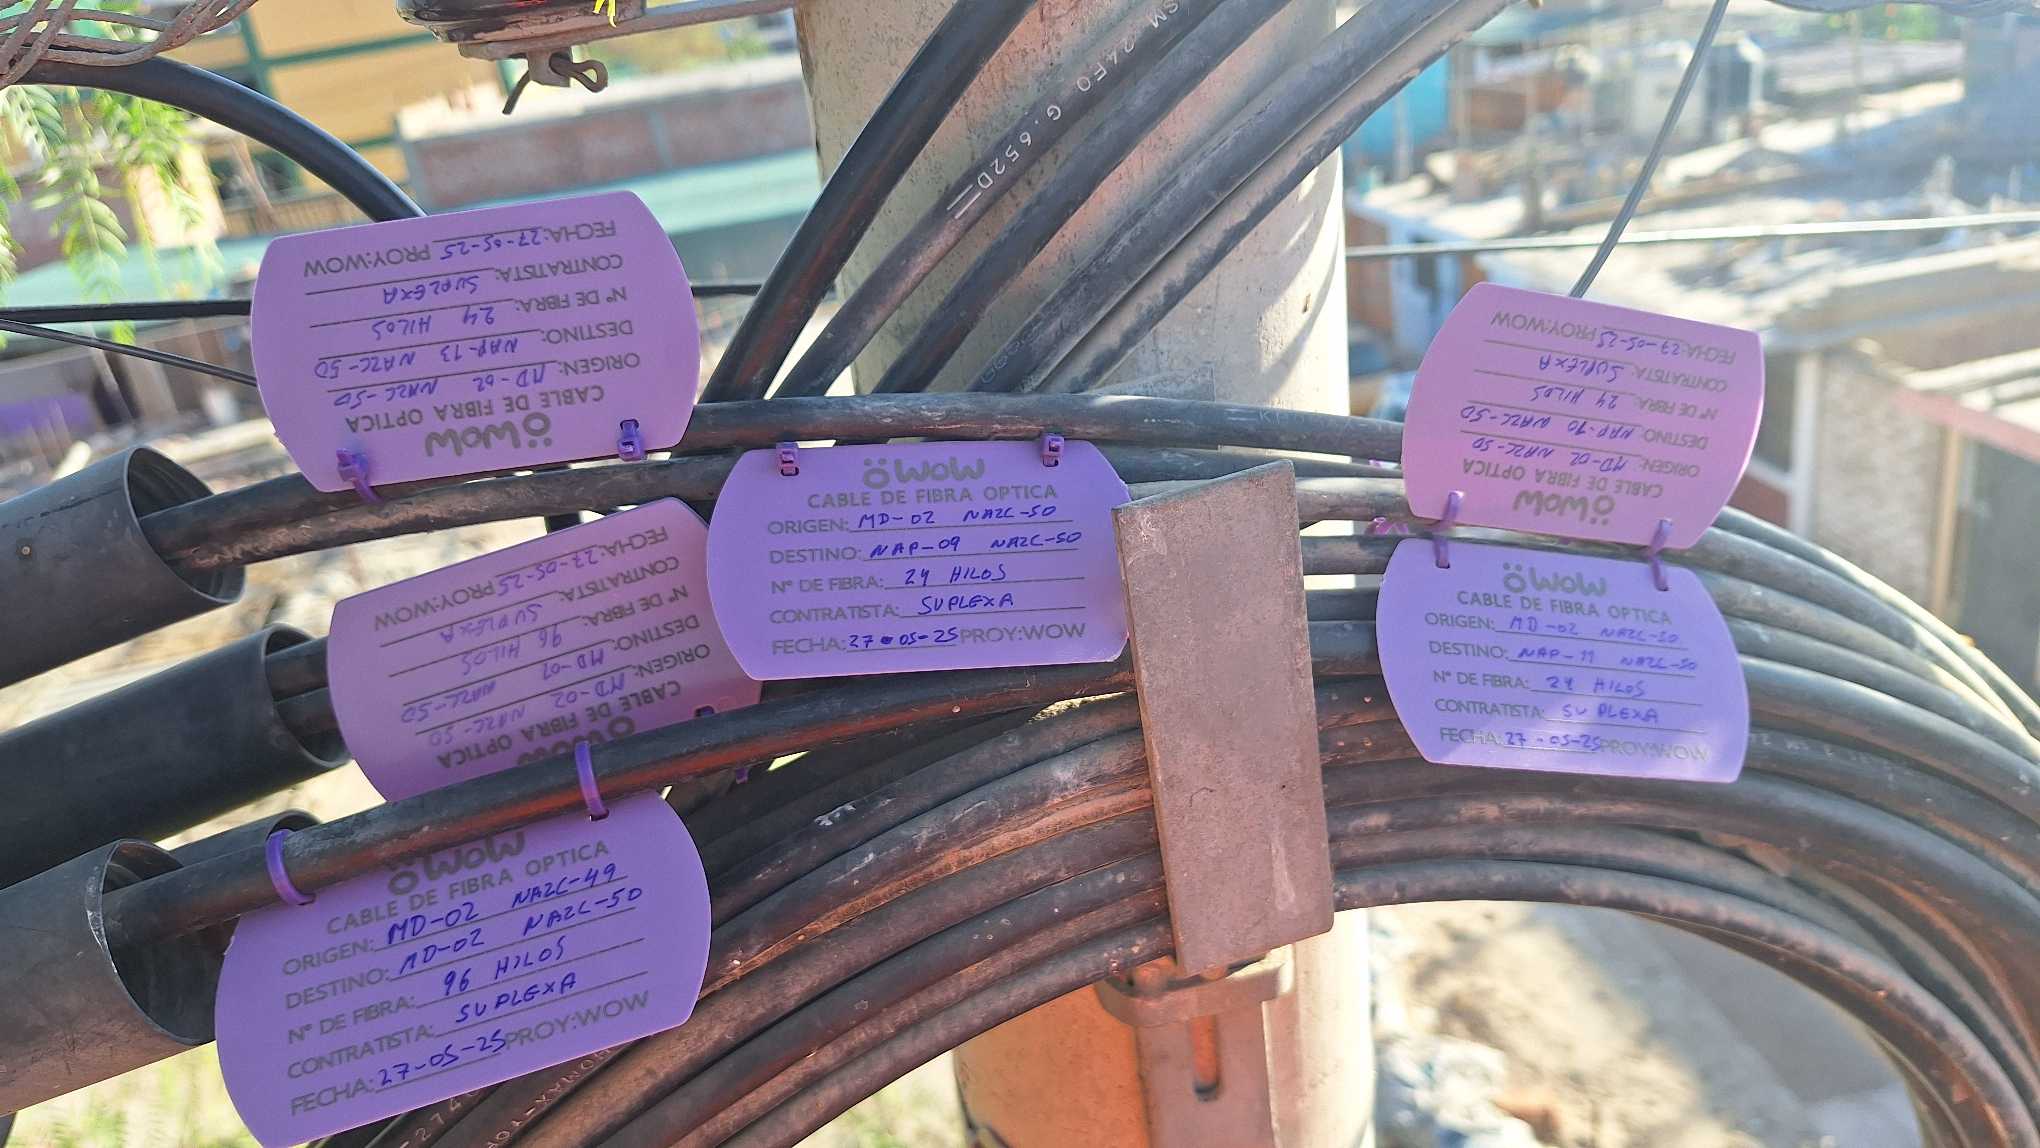 SM 24FO G.652D
WOW
CABLE DE FIBRA OPTICA
ORIGEN: MD-02 NAZC-50
DESTINO: NAP-13 NAZC-50
N° DE FIBRA: 24 HILOS
CONTRATISTA: SUPLEXA
FECHA: 27-05-25 PROY:WOW
WOW
CABLE DE FIBRA OPTICA
ORIGEN: MD-02 NAZC-50
DESTINO: NAP-10 NAZC-50
N° DE FIBRA: 24 HILOS
CONTRATISTA: SUPLEXA
FECHA: 27-05-25 PROY:WOW
WOW
CABLE DE FIBRA OPTICA
ORIGEN: MD-02 NAZC-50
DESTINO: NAP-09 NAZC-50
N° DE FIBRA: 24 HILOS
CONTRATISTA: SUPLEXA
FECHA: 27-05-25 PROY:WOW
WOW
CABLE DE FIBRA OPTICA
ORIGEN: MD-02 NAZC-50
DESTINO: MD-01 NAZC-50
N° DE FIBRA: 96 HILOS
CONTRATISTA: SUPLEXA
FECHA: 27-05-25 PROY:WOW
WOW
CABLE DE FIBRA OPTICA
ORIGEN: MD-02 NAZC-50
DESTINO: NAP-11 NAZC-50
N° DE FIBRA: 24 HILOS
CONTRATISTA: SUPLEXA
FECHA: 27-05-25 PROY:WOW
WOW
CABLE DE FIBRA OPTICA
ORIGEN: MD-02 NAZC-49
DESTINO: MD-02 NAZC-50
N° DE FIBRA: 96 HILOS
CONTRATISTA: SUPLEXA
FECHA: 27-05-25 PROY:WOW